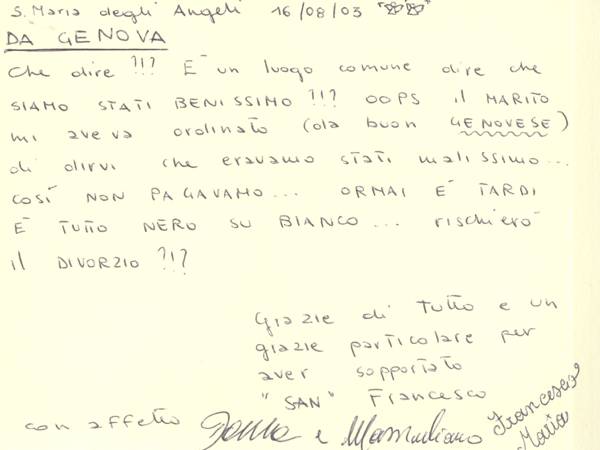 S. Maria degli Angeli 16/08/03
DA GENOVA
Che dire ?!? È un luogo comune dire che
SIAMO STATI BENISSIMO ?!? OOPS il MARITO
mi aveva ordinato (da buon GENOVESE)
di dirvi che eravamo stati malissimo...
COSÍ NON PAGAVAMO... ORMAI È TARDI
È TUTTO NERO SU BIANCO... rischierò
il DIVORZIO ?!?
Grazie di tutto e un
grazie particolare per
aver sopportato
"SAN" Francesco
con affetto e Massimiliano Francesco
Maria